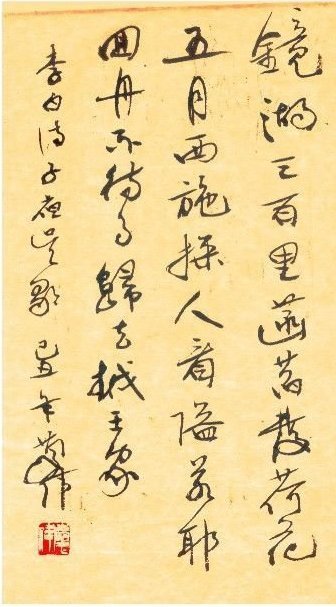 鏡湖三百里菡萏發荷花
五月西施採人看隘若耶
回舟不待月歸去越王家
李白詩子夜吳歌己丑年